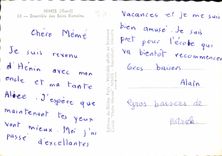 NIMES (Gard)
Ensemble des Bains Romains.
Chère Mémé
Je suis revenu
d'Hénin avec mon
oncle et ma tante
Aldée. J'espère que
maintenant tes yeux
vont mieux. Moi j'ai
passé d'excellantes
Vacances et je me suis
bien amusé. Je suis
pret pour l'école qui
va bientôt recommencer
Gros baisers
Alain
Gros baisers de